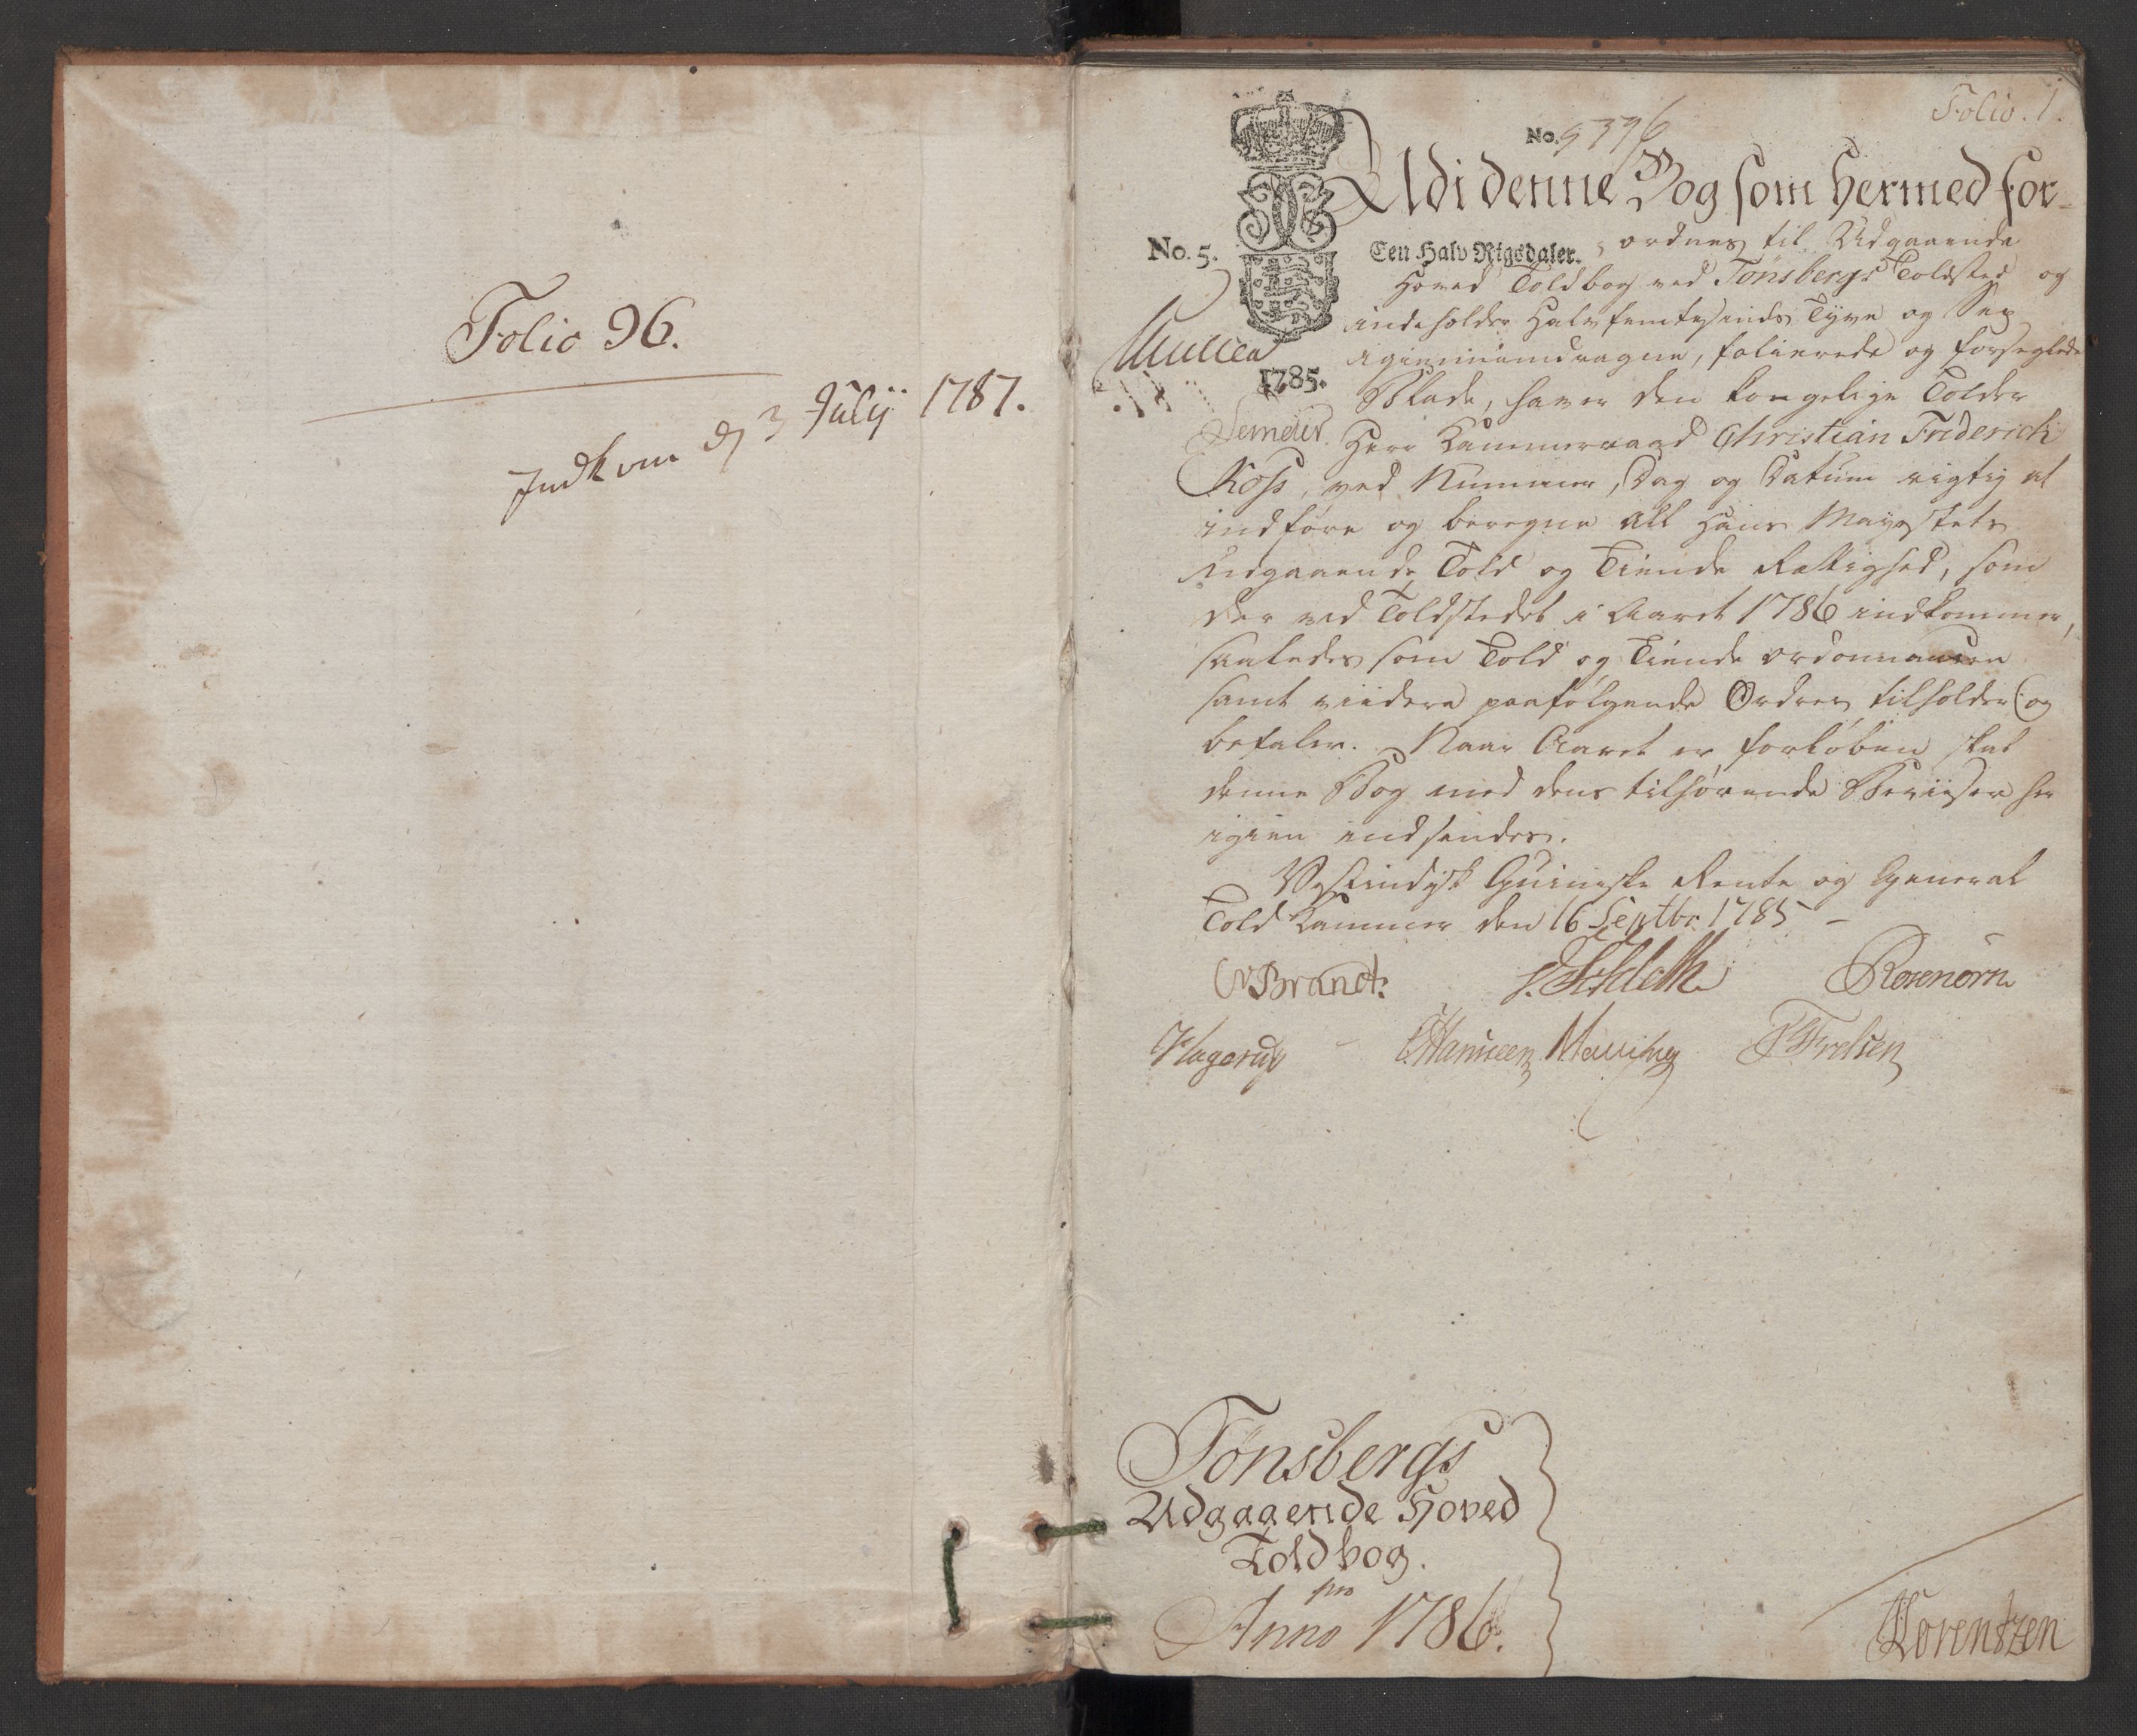 Folio 96.
Indkom d 3 Julij 1787.
Folio. 1.
No. 5396
Udi denne Bog som hermed for-
No. 5.
Een Halv Rigsdaler.
ordnes til Udgaaende
Hoved Toldbog ved Tønsbergs Toldsted og
indeholder Halvfemtesinds Tyve og Sex
igiennemdragne, folierede og forseglede
1785.
Blade, haver den kongelige Tolder
Herr Kammerraad Christian Friderich
Koss, ved Nummer, Dag og Datum rigtig at
indføre og beregne all Hans Mayestets
udgaaende Told og Tiende Rettighed, som
der ved Toldstedet i Aaret 1786 indkommer,
saaledes som Told og Tiende ordonnancen
samt viidere paafølgende Ordres tilholder og
befaler. Naar Aaret er forløben skal
denne Bog med dens tilhørende Beviiser her
igien indsendes.
Vestindisk Guineiske Rente og General
Told Kammer den 16 Septbr. 1785
Brandt.
Rosenørn
Hagerup
Lorentzen
Tønsbergs
Udgaaende Hoved
Toldbog.
pro
Anno 1786.